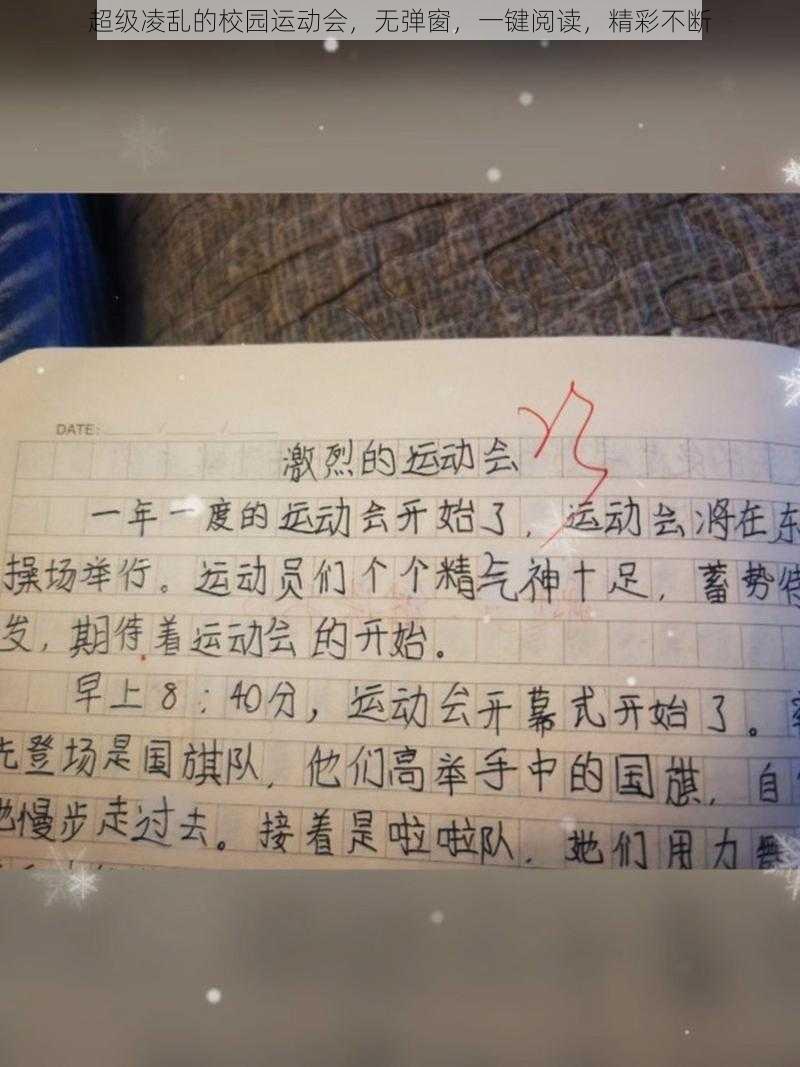 超级凌乱的校园运动会，无弹窗，一键阅读，精彩不断
DATE: / /
激烈的运动会
一年一度的运动会开始了，运动会将在东
操场举行。运动员们个个精气神十足，蓄势待
发，期待着运动会的开始。
早上8：40分，运动会开幕式开始了。率
先登场是国旗队，他们高举手中的国旗，自
地慢步走过去。接着是啦啦队，她们用力舞